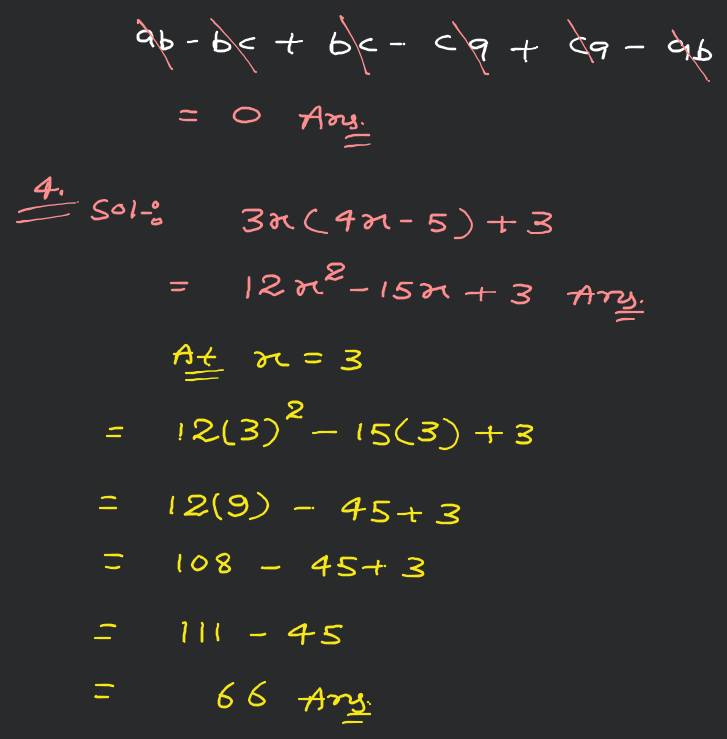 ab - bc + bc - ca + ca - ab
= 0 Ans.
4. Sol-: 3x(4x-5)+3
= 12x² - 15x + 3 Ans.
At x = 3
= 12(3)² - 15(3) + 3
= 12(9) - 45 + 3
= 108 - 45 + 3
= 111 - 45
= 66 Ans.